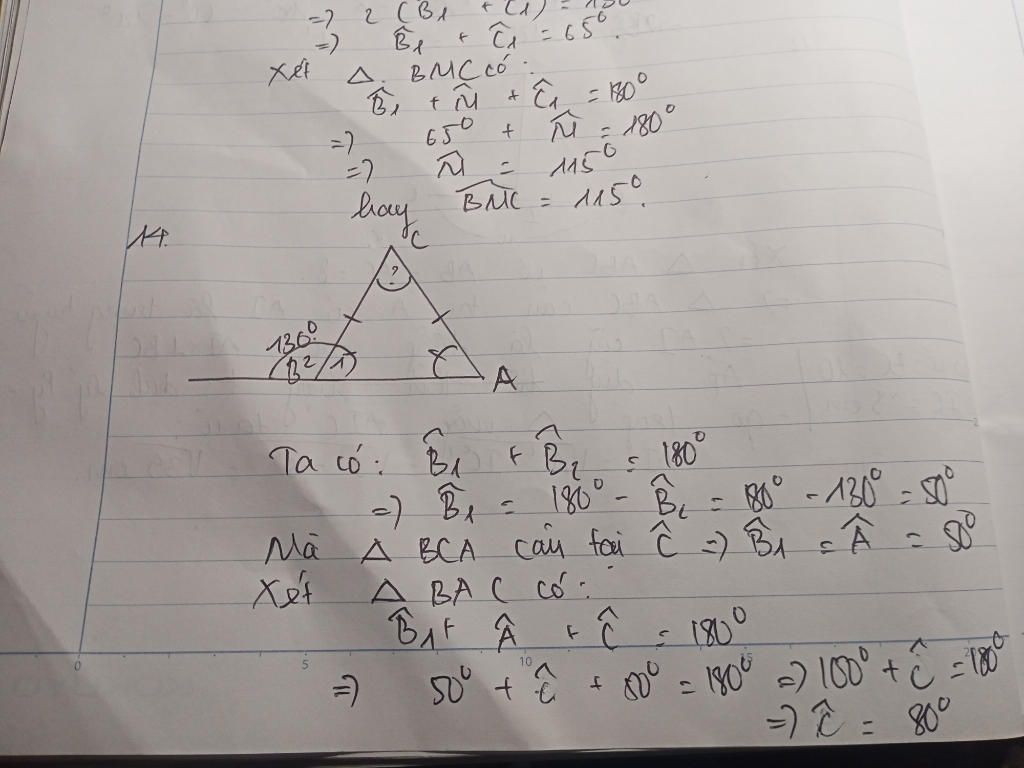 => 2 (B1 + C1) = 130
=> B̂1 + Ĉ1 = 65⁰.
Xét Δ. BMC có:
B̂1 + M̂ + Ĉ1 = 180⁰
=> 65⁰ + M̂ = 180⁰
=> M̂ = 115⁰
hay BMC = 115⁰.
14.
C
?
130⁰
B 2 1
A
Ta có: B̂1 + B̂2 = 180⁰
=> B̂1 = 180⁰ - B̂2 = 180⁰ - 130⁰ = 50⁰
Mà Δ BCA cân tại Ĉ => B̂1 = Â = 50⁰
Xét Δ BAC có:
B̂1 + Â + Ĉ = 180⁰
=> 50⁰ + Ĉ + 50⁰ = 180⁰ => 100⁰ + Ĉ = 180⁰
=> Ĉ = 80⁰
0 5 10